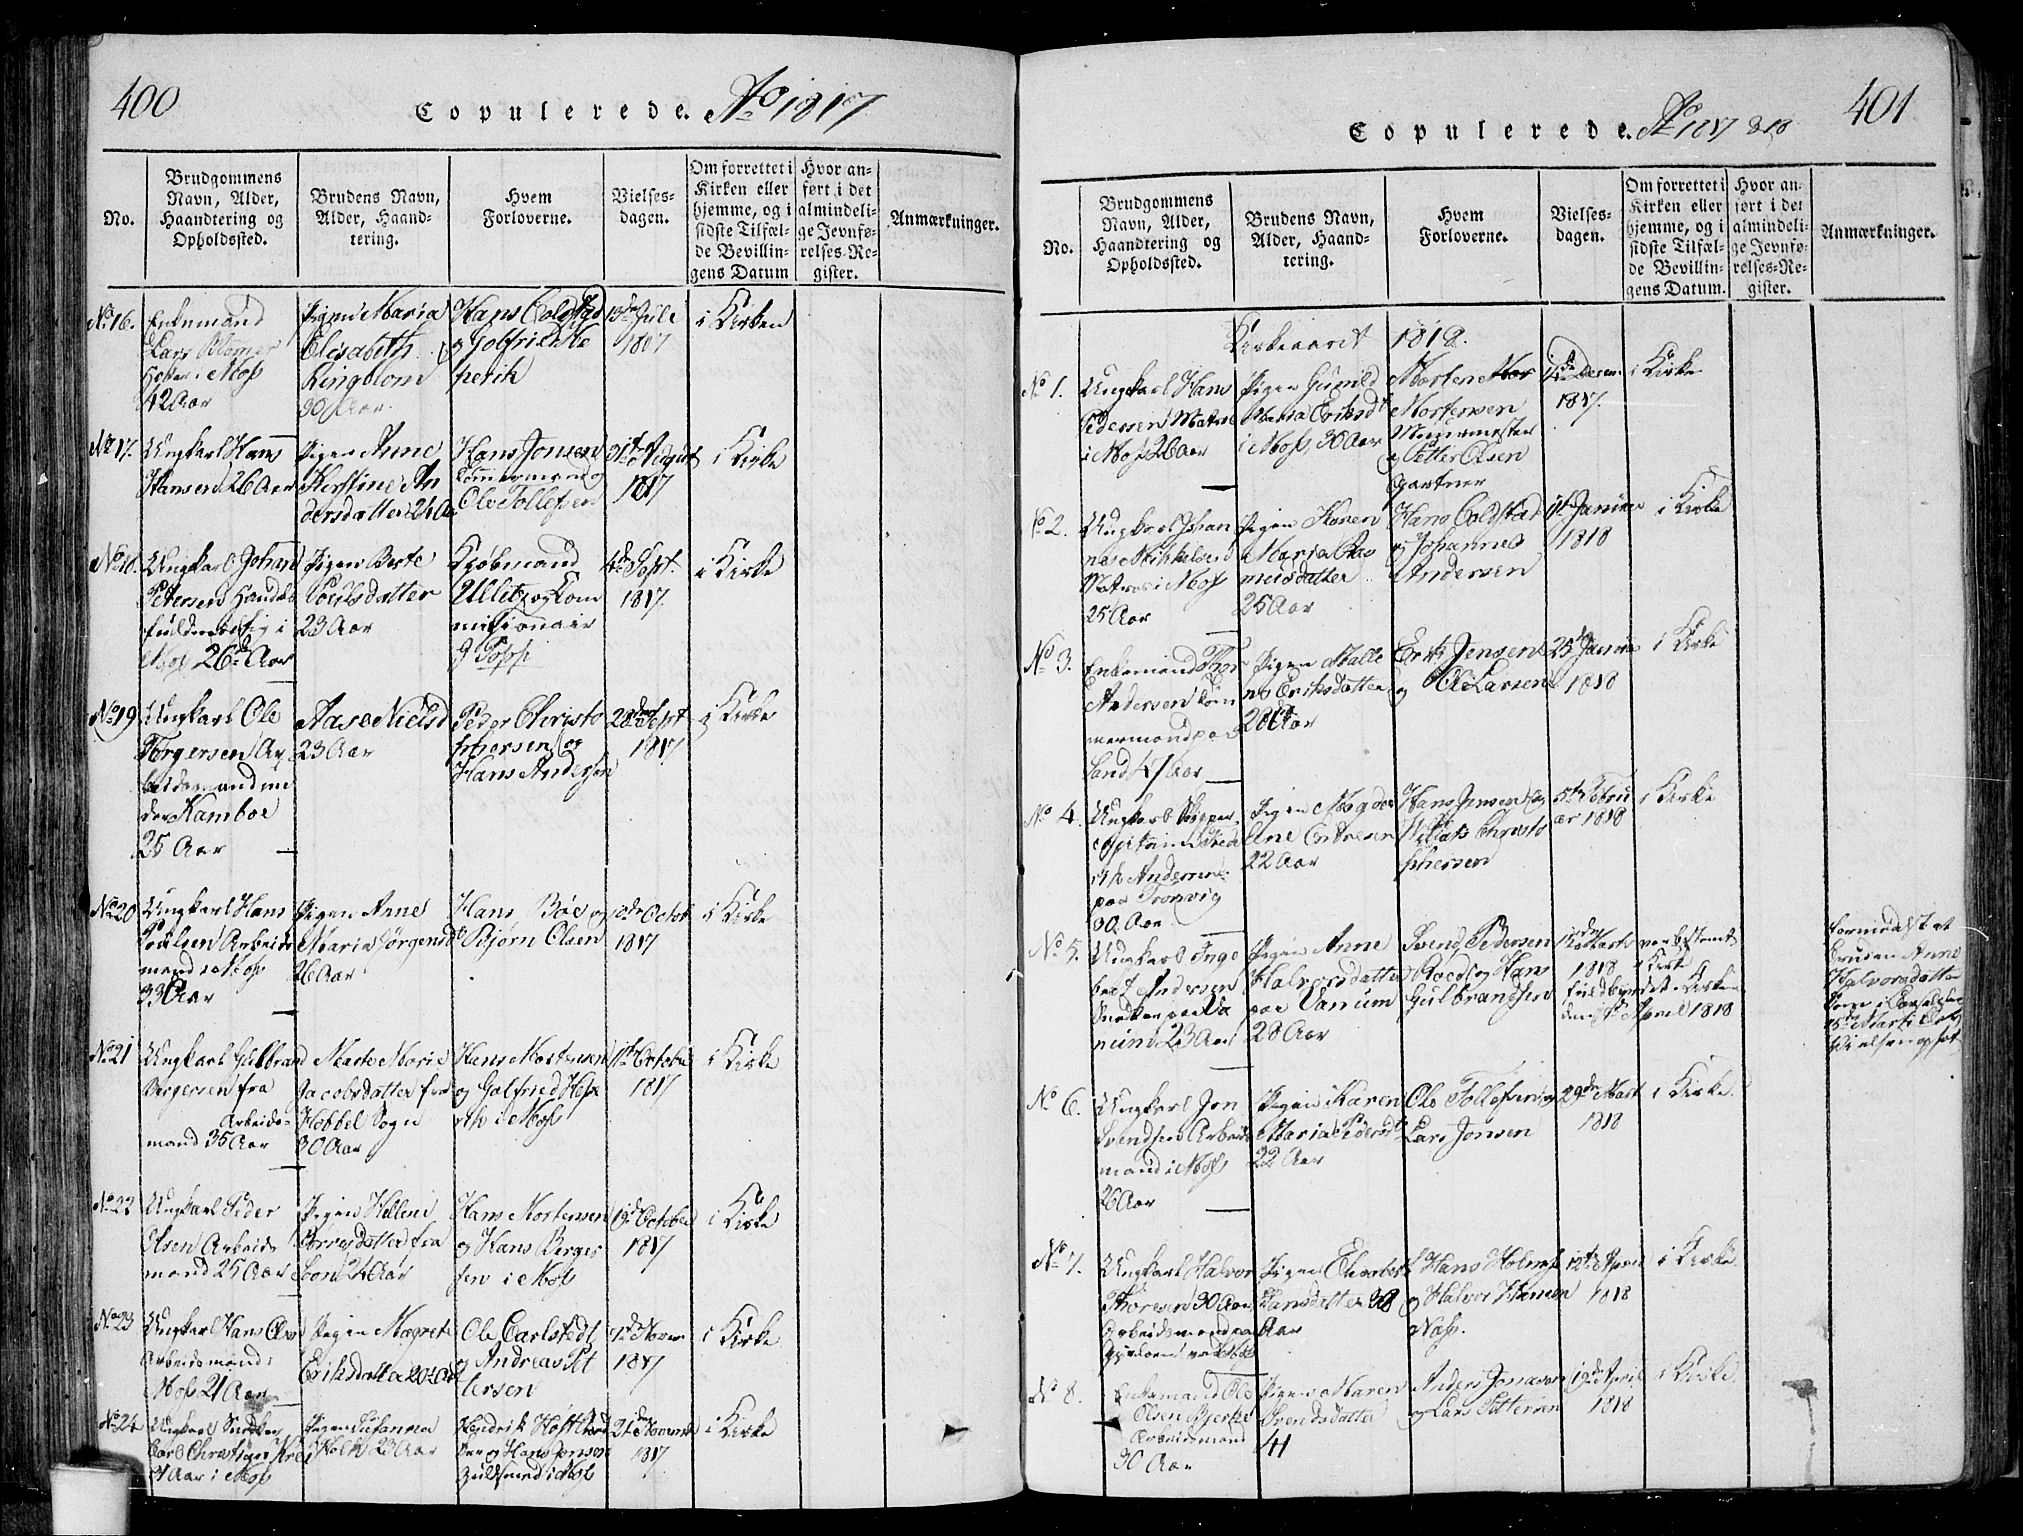 400
Copulerede. Ao 1817
No.
Brudgommens
Navn, Alder,
Haandtering og
Opholdssted.
Brudens Navn,
Alder, Haand-
tering.
Hvem
Forloverne.
Vielses-
dagen.
Om forrettet i
Kirken eller
hjemme, og i
sidste Tilfæl-
de Bevillin-
gens Datum
Hvor an-
ført i det
almindeli-
ge Jevnfø-
relses-Re-
gister.
Anmærkninger.
No 16.
Enkemand
Lars
i Moss
42 Aar
Pigen Maria
Elisabeth
Ringblom
30 Aar
Hans Coldstad
og Golfried He
perik
13de Juli
1817
i Kirken
No 17.
Ungkarl Hans
Hansen 26 Aar
Pigen Anne
Kirstine An
dersdatter 24 Aar
Hans Jonsen
Tømmermand og
Ole Tollefsen
31te August
1817
i Kirke
No 18.
Ungkarl Johan
Petersen Handels
fuldmægtig i
Moss 26 Aar
Pigen Berte
Poulsdatter
23 Aar
Kjøbmand
Ullitz og Com
missionair
J Popp
4de Sept.
1817.
i Kirke
No 19
Ungkarl Ole
Torgersen Ar
beidsmand un
der Kamboe
25 Aar
Aase Nielsd
23 Aar
Peder Christo
phersen og
Hans Andersen
28de Sept
1817
i Kirke
No 20
Ungkarl Hans
Poulsen Arbeids
mand i Moss
33 Aar
Pigen Anne
Maria Jørgensdt
26 Aar
Hans Böe og
Bjørn Olsen
October
1817
i Kirke
No 21
Ungkarl Gulbrand
Børgersen fra
Arbeids-
mand 35 Aar
Marte Marie
Jacobsdatter fra
Hobbel Sogn
30 Aar
Hans Mortensen
og Golfried Hep
rik i Moss
October
1817
i Kirke
No 22
Ungkarl Peder
Olsen Arbeids
mand 25 Aar
Pigen Hellene
Torresdatter fra
Soon 24 Aar
Hans Mortensen
og Hans Børger
sen i Moss
19de October
1817
i Kirke
No 23
Ungkarl Hans
Arbeidsmand i
Moss 21 Aar
Pigen Magrete
Eriksdatter 20 Aar
Ole Carlstedt
og Andreas Pet
tersen
Novem
1817
i Kirke
No 24
Ungkarl Snedker
Carl Christian
Aar i Moss
Pigen Susanna
Holk 23 Aar
Hendrik
og Hans Jonsen
Guldsmed i Moss
21de Novemb
1817
i Kirke
401
Copulerede. Ao 1817 & 18
No.
Brudgommens
Navn, Alder,
Haandtering og
Opholdssted.
Brudens Navn,
Alder, Haand-
tering.
Hvem
Forloverne.
Vielses-
dagen.
Om forrettet i
Kirken eller
hjemme, og i
sidste Tilfæl-
de Bevillin-
gens Datum.
Hvor an-
ført i det
almindeli-
ge Jevnfø-
relses-Re-
gister.
Anmærkninger.
Kirkeaaret 1818.
No 1.
Ungkarl Hans
Pedersen Matros
i Moss 26 Aar
Pigen Gunild
Maria Eriksdt
i Moss, 30 Aar
Morten Mor
Mortensen
Muurmester
og Petter Olsen
Gartner
Decem
1817.
i Kirke
No 2.
Ungkarl Johan
nes Mikkelsen
Matros i Moss
25 Aar
Pigen Karen
Maria Ras
musdatter
25 Aar
Hans Coldstad
og Johannes
Andersen
Januar
1818
i Kirke
No 3.
Enkemand Thor
Andersen Tøm
mermand paa
Sand 47 Aar
Pigen Malle
Eriksdatter
28 Aar
Erik Jensen
og Ole Larsen
25 Januar
1818
i Kirke
No 4.
Ungkarl Skipper
Capitain
Andersen
paa Tronvig
30 Aar
Pigen Magda
lene Endresen
22 Aar
Hans Jensen og
Christo
phersen
5te Febru
ar 1818
i Kirke
No 5.
Ungkarl Inge
bret Andersen
Snedker paa Va
num 23 Aar
Pigen Anne
Halvorsdatter
paa Vanum
28 Aar
Svend Pedersen
Roed og Hans
Gulbrandsen
Marts
1818
var bestemt
i Kirke
fuldbyrdet i Kirken
den April 1818
formedelst at
Bruden Anne
Halvorsdatter
Vielsen opsat
No 6.
Ungkarl Jon
Svendsen Arbeids
mand i Moss
26 Aar
Pigen Karen
Maria Pedersdt
22 Aar
Ole Tollefsen og
Lars Jonsen
29de Mart
1818
i Kirke.
No 7.
Ungkarl Halvor
Thoresen 30 Aar
Arbeidsmand paa
ved Moss
Pigen Elisabeth
Hansdatter 38
Aar
Hans Holmss
og Halvor Hansen
Næss.
12te April
1818
i Kirke
No 8.
Enkemand Ole
Olsen Bjerke
Arbeidsmand
30 Aar
Pigen Maren
Svendsdatter
41
Anders Jonassen
og Lars Pettersen
19de April
1818
i Kirke.